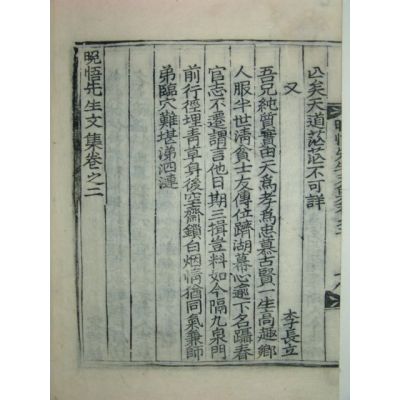 矣天道茫茫不可詳
又 李長立
吾兄純質實由天爲孝爲忠慕古賢一生高趣鄉
人服半世淸貧士友傳位躋湖幕心逾下名躡春
官志不遷謂言他日期三揖豈料如今隔九泉門
前行徑埋靑草身後空齋鎖白烟情猶同氣兼師
弟臨穴難堪涕泗漣
晩悟先生文集卷之二